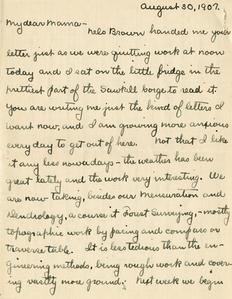 August 30, 1907.
My dear Mama –
Nelo Brown handed me your
letter just as we were quitting work at noon
today and I sat on the little bridge in the
prettiest part of the Sawkill gorge to read it
You are writing me just the kind of letters I
want now, and I am growing more anxious
every day to get out of here. Not that I like
it any less nowadays – the weather has been
great lately and the work very interesting. We
are now taking, besides our Mensuration and
Dendrology, a course in Forest Surveying, – mostly
topographic work by pacing and compass or
traverse table. It is less tedious than the en-
gineering methods, being rough work and cover-
ing vastly more ground. Next week we begin